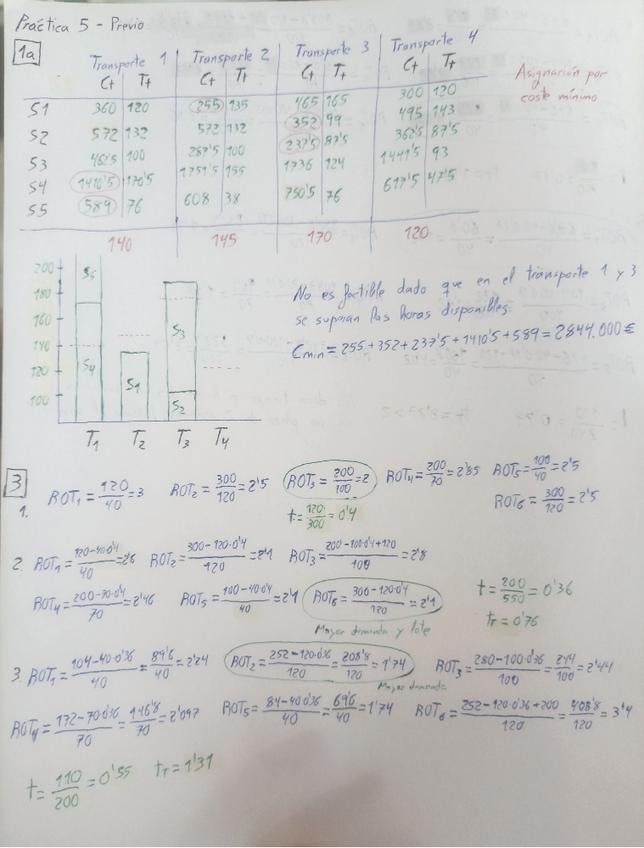 Práctica 5 - Previo
1a
Transporte 1 Transporte 2 Transporte 3 Transporte 4
C+ T+ C+ T+ C+ T+ C+ T+
Asignación por
coste mínimo
S1 360 120 255 135 465 165 300 120
S2 572 132 572 132 352 99 495 143
S3 462'5 100 287'5 100 237'5 87'5 362'5 87'5
S4 1410'5 170'5 1751'5 155 1736 124 1441'5 93
S5 589 76 608 38 750'5 76 617'5 47'5
140 145 170 120
200
180
160
140
120
100
S5
S4
S1
S3
S2
T1 T2 T3 T4
No es factible dado que en el transporte 1 y 3
se superan las horas disponibles.
Cmin = 255 + 352 + 237'5 + 1410'5 + 589 = 2844.000 €
3
1. ROT1 = 120/40 = 3 ROT2 = 300/120 = 2'5 ROT3 = 200/100 = 2 ROT4 = 200/70 = 2'85 ROT5 = 100/40 = 2'5
ROT6 = 300/120 = 2'5
t = 120/300 = 0'4
2. ROT1 = 120-40·0'4/40 = 2'6 ROT2 = 300-120·0'4/120 = 2'1 ROT3 = 200-100·0'4+120/100 = 2'8
ROT4 = 200-70·0'4/70 = 2'46 ROT5 = 100-40·0'4/40 = 2'1 ROT6 = 300-120·0'4/120 = 2'1
t = 200/550 = 0'36
tT = 0'76
Mayor demanda y lote
3. ROT1 = 104-40·0'36/40 = 89'6/40 = 2'24 ROT2 = 252-120·0'36/120 = 208'8/120 = 1'74 ROT3 = 280-100·0'36/100 = 244/100 = 2'44
Mayor demanda
ROT4 = 172-70·0'36/70 = 146'8/70 = 2'097 ROT5 = 84-40·0'36/40 = 69'6/40 = 1'74 ROT6 = 252-120·0'36+200/120 = 408'8/120 = 3'4
t = 110/200 = 0'55 tT = 1'31